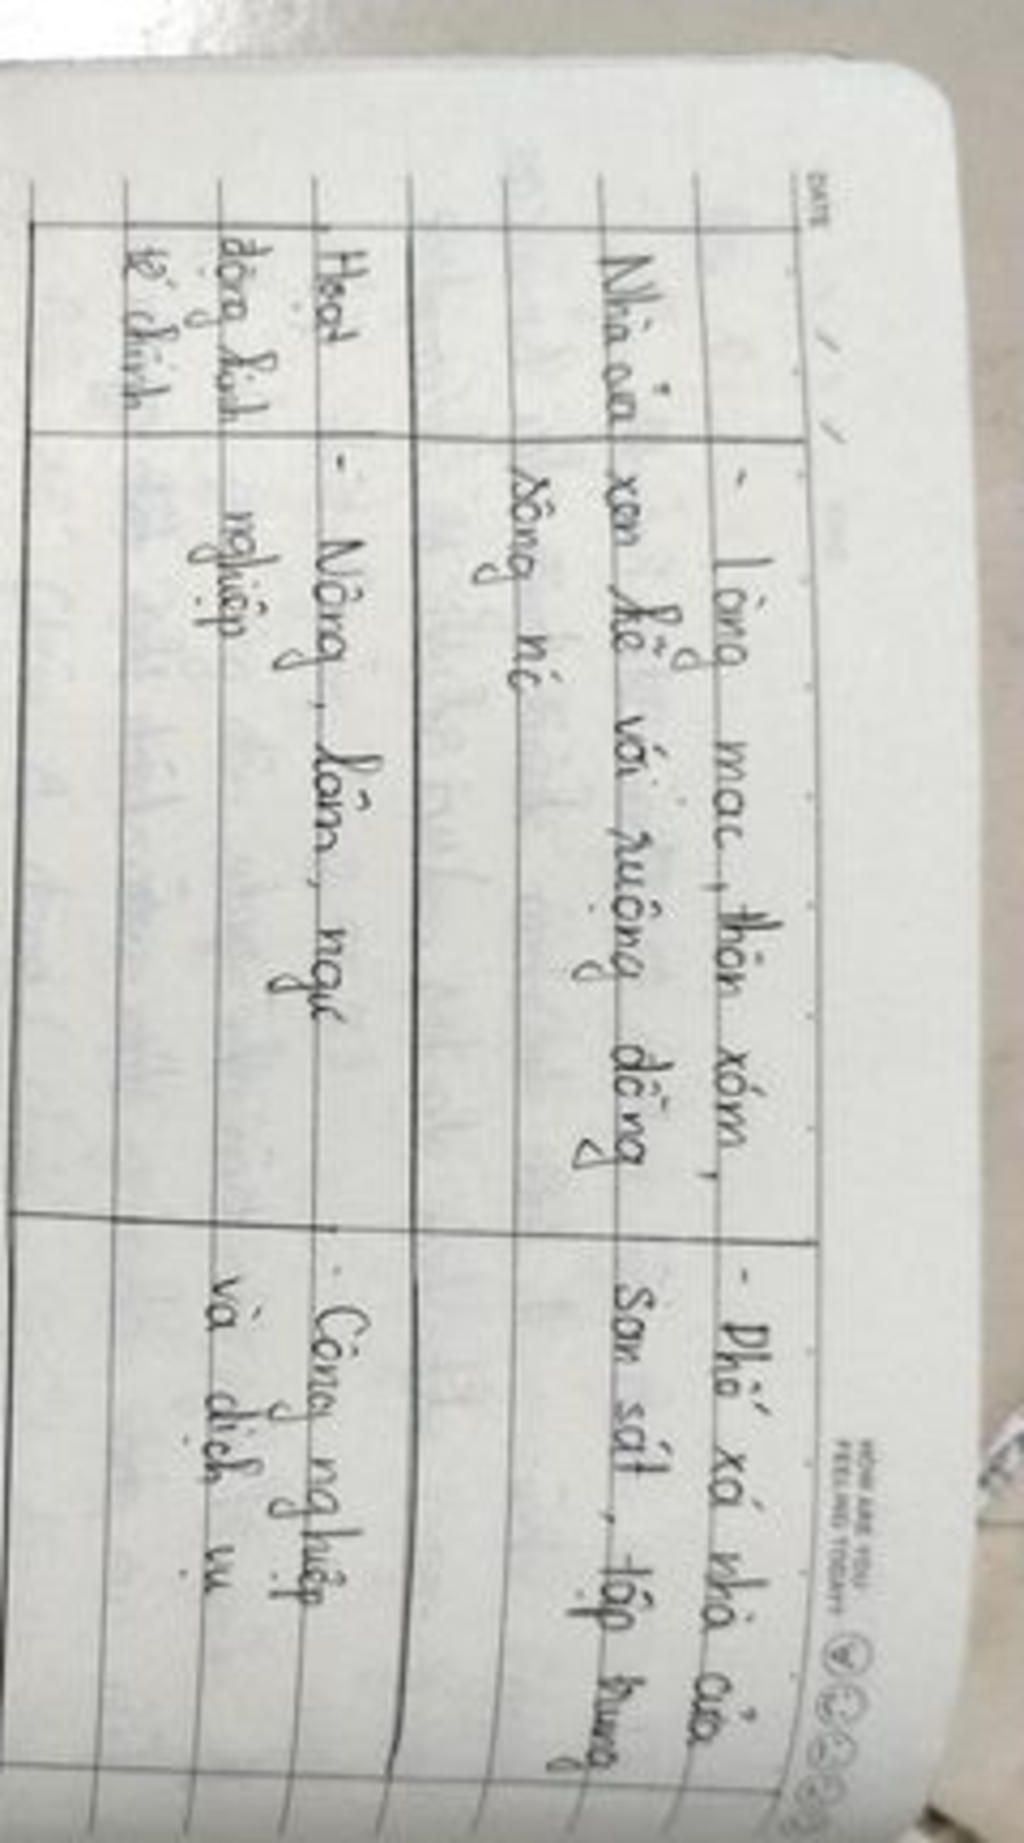 DATE / /
HOW ARE YOU
FEELING TODAY?
- Làng mạc, thôn xóm,
- Phố xá nhà cửa
Nhà cửa
xen kẽ với ruộng đồng
san sát, tập trung
sông nc
Hoạt
- Nông, lâm, ngư
- Công nghiệp
động kinh
nghiệp
và dịch vụ
tế chính